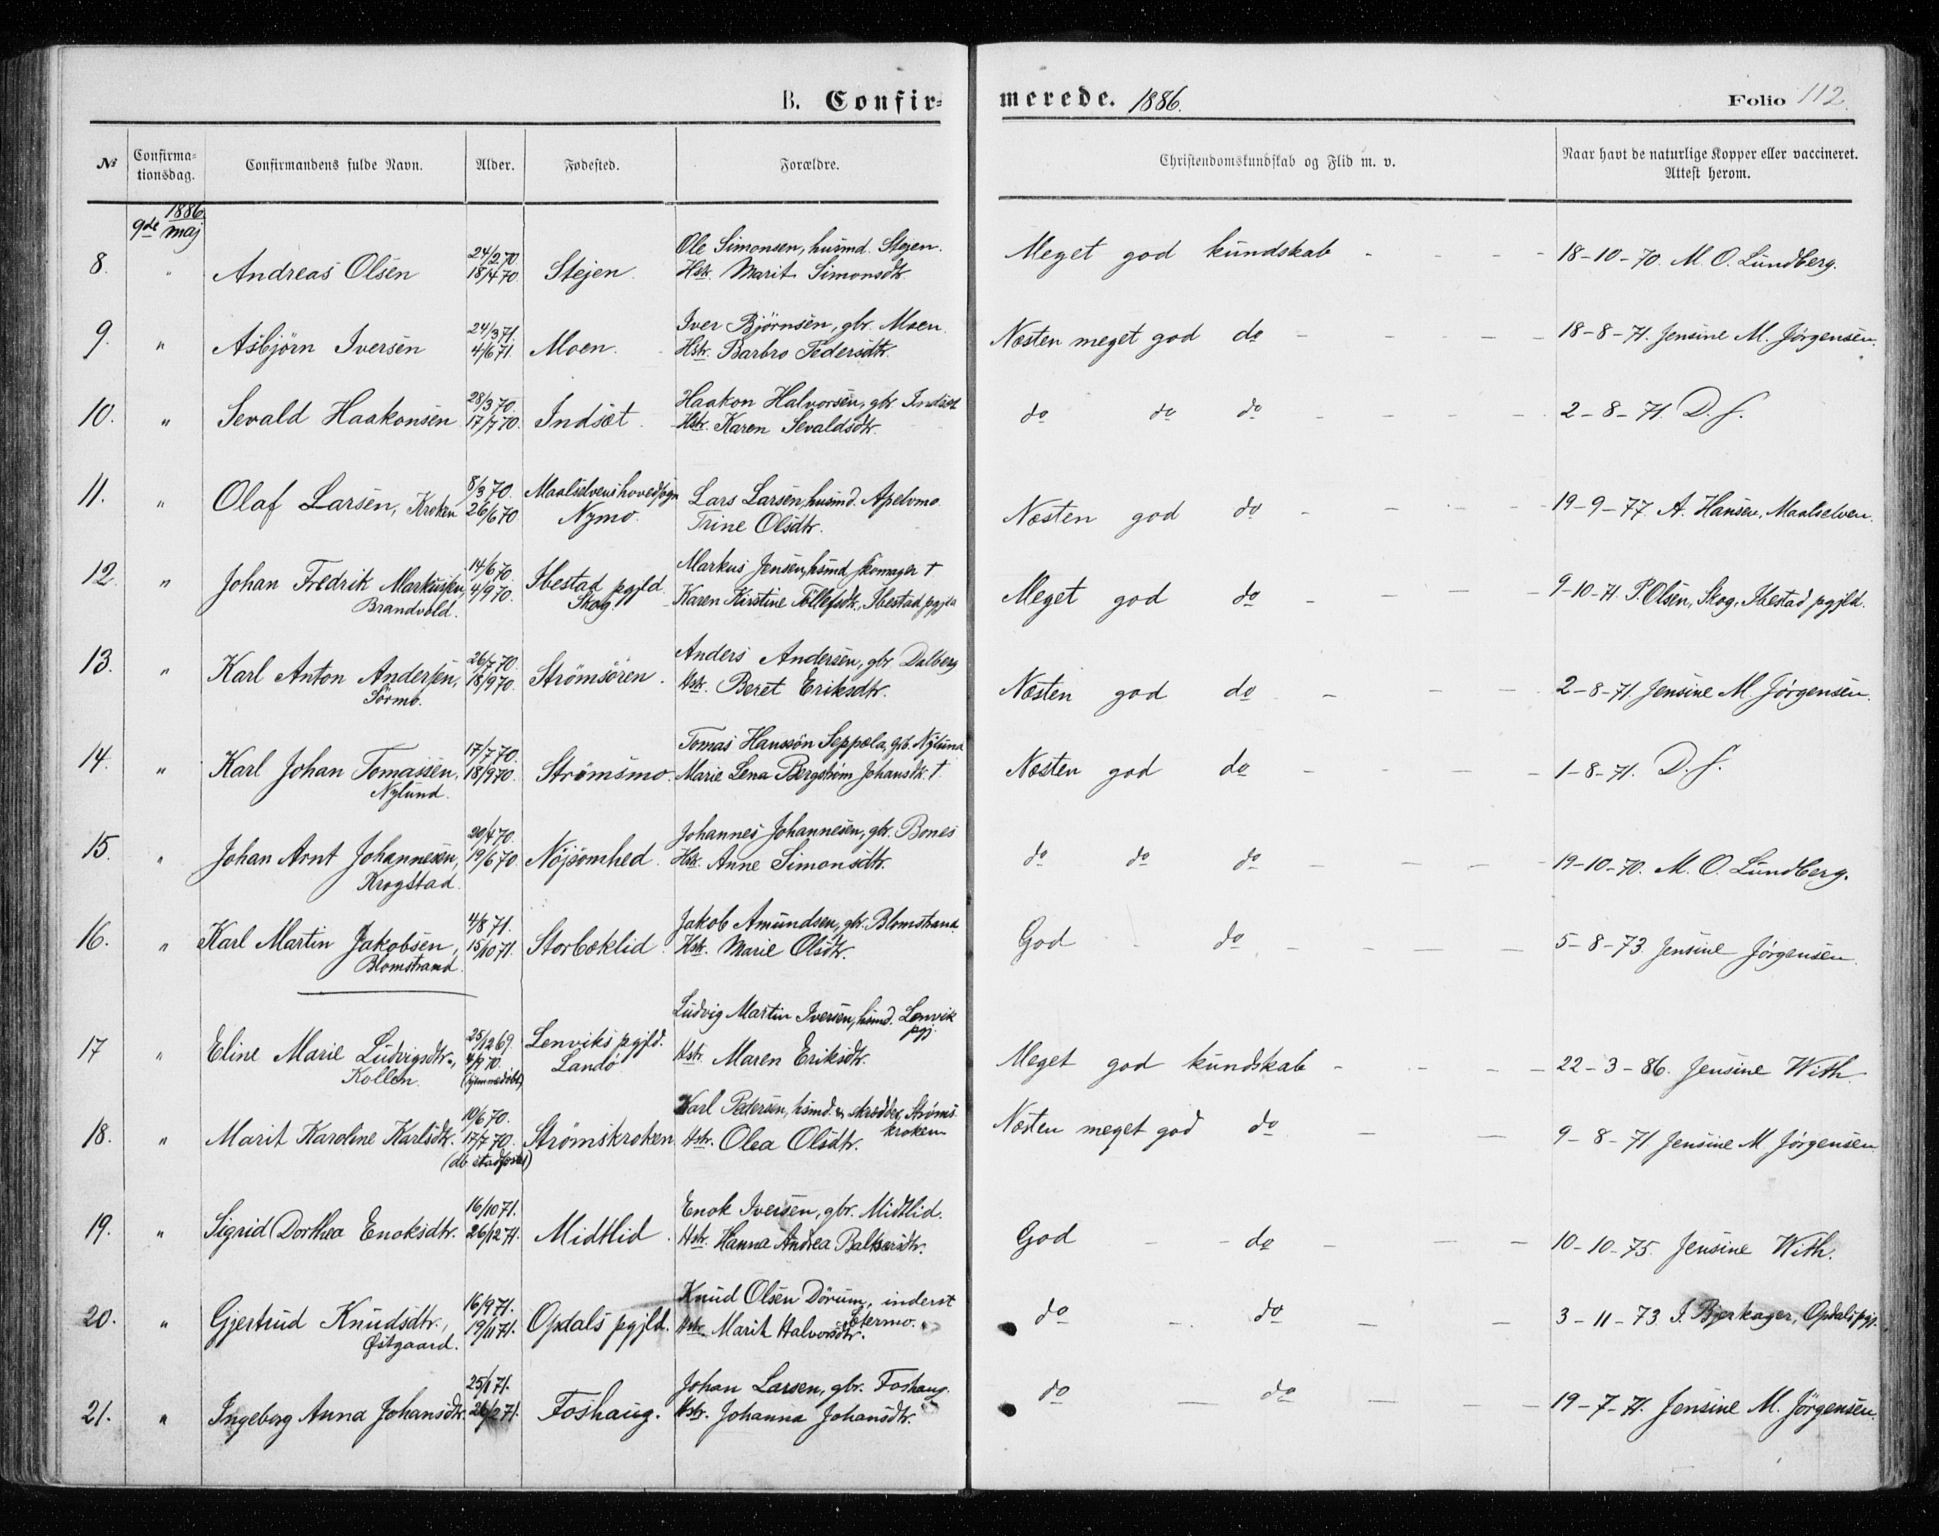 B. Confirmerede. 1886. Folio 112.
№ Confirmationsdag. Confirmandens fulde Navn. Alder. Fødested. Forældre. Christendomskundskab og Flid m. v. Naar havt de naturlige Kopper eller vaccineret. Attest herom.
1886
9de maj
8. " Andreas Olsen 24/2 70. 18/4 70. Stejen Ole Simonsen, husmd. Stejen. Hstr. Marit Simonsdtr. Meget god kundskab - - - - 18-10-70. M. O. Lundberg.
9. " Asbjörn Iversen 24/3 71. 4/6 71 Moen. Iver Björnsen, gbr. Moen. Hstr. Barbro Pedersdtr. Næsten meget god do - - - - 18-8-71. Jensine M. Jørgensen.
10. " Sevald Haakonsen 28/3 70. 17/7 70. Indsæt. Haakon Halvorsen, gbr. Indsæt Hstr. Karen Sevaldsdtr. do do do - - - - 2-8-71. D. S.
11. " Olaf Larsen, Kroken 8/3 70. 26/6 70 Maalselvens hovedsogn Nymo. Lars Larsen, husmd. Apelvmo. Trine Olsdtr. Næsten god do - - - - 19-9-77. A. Hansen, Maalselven.
12. " Johan Fredrik Markussen, Brandvold. 14/6 70. 4/9 70. Ibestad pgjld. Skog Markus Jensen, husmd skomager † Karen Kirstine Tollefsdtr, Ibestad pgjld Meget god do - - - - 9-10-71. P. Olsen, Skog, Ibestad pgjld.
13. " Karl Anton Andersen, Sörmo. 26/7 70. 18/9 70. Strömsören. Anders Andersen, gbr. Dalberg Hstr. Beret Eriksdtr. Næsten god do - - - 2-8-71. Jensine M. Jørgensen.
14. " Karl Johan Tomassen, Nylund. 17/7 70. 18/9 70. Strömsmo. Tomas Hansson Seppela, gb. Nylund Marie Lena Bergström Johansdtr. † Næsten god do - - - - 1-8-71. D. S.
15. " Johan Arnt Johannesen, Krogstad. 20/4 70. 19/6 70 Nöjsomhed. Johannes Johannesen, gbr. Bones Hstr. Anne Simonsdtr. do do do - - - - 19-10-70. M. O. Lundberg.
16. " Karl Martin Jakobsen, Blomstrand. 4/8 71. 15/10 71. Storbæklid. Jakob Amundsen, gbr. Blomstrand. Hstr. Marie Olsdtr. God - do - - - - 5-8-73. Jensine Jørgensen.
17 " Eline Marie Ludvigsdtr., Kollen. 25/12 69. 4/9 70. (hjemmedöbt) Lenviks pgjld. Landö Ludvig Martin Iversen, husmd. Lenvik pgj. Hstr. Maren Eriksdtr. Meget god kundskab - - - - 22-3-86. Jensine With.
18. " Marit Karoline Karlsdtr. 10/6 70. 17/7 70. (db. stadfæstet) Strömskroken Karl Pedersen, husmd. & skrædder, Ströms kroken Hstr. Olea Olsdtr. Næsten meget god do - - 9-8-71 Jensine M. Jørgensen
19. " Sigrid Dorthea Enoksdtr. 16/10 71. 26/12 71. Midtlid. Enok Iversen, gbr. Midtlid. Hstr. Hanna Andrea Baltsersdtr. God - - do - - - 10-10-75. Jensine With.
20. " Gjertrud Knudsdtr., Østgaard. 16/9 71. 19/11 71. Opdals pgjld. Knud Olsen Dörum, inderst Sætermo. Hstr Marit Halvorsdtr. do - - do - - - 3-11-73. I. Bjerkager, Opdals pgj.
21. " Ingeborg Anna Johansdtr. 25/1 71. 26/2 71. Foshaug. Johan Larsen, gbr. Foshaug. Hstr. Johanna Johansdtr. do - - do - - - - 19-7-71. Jensine M. Jörgensen.